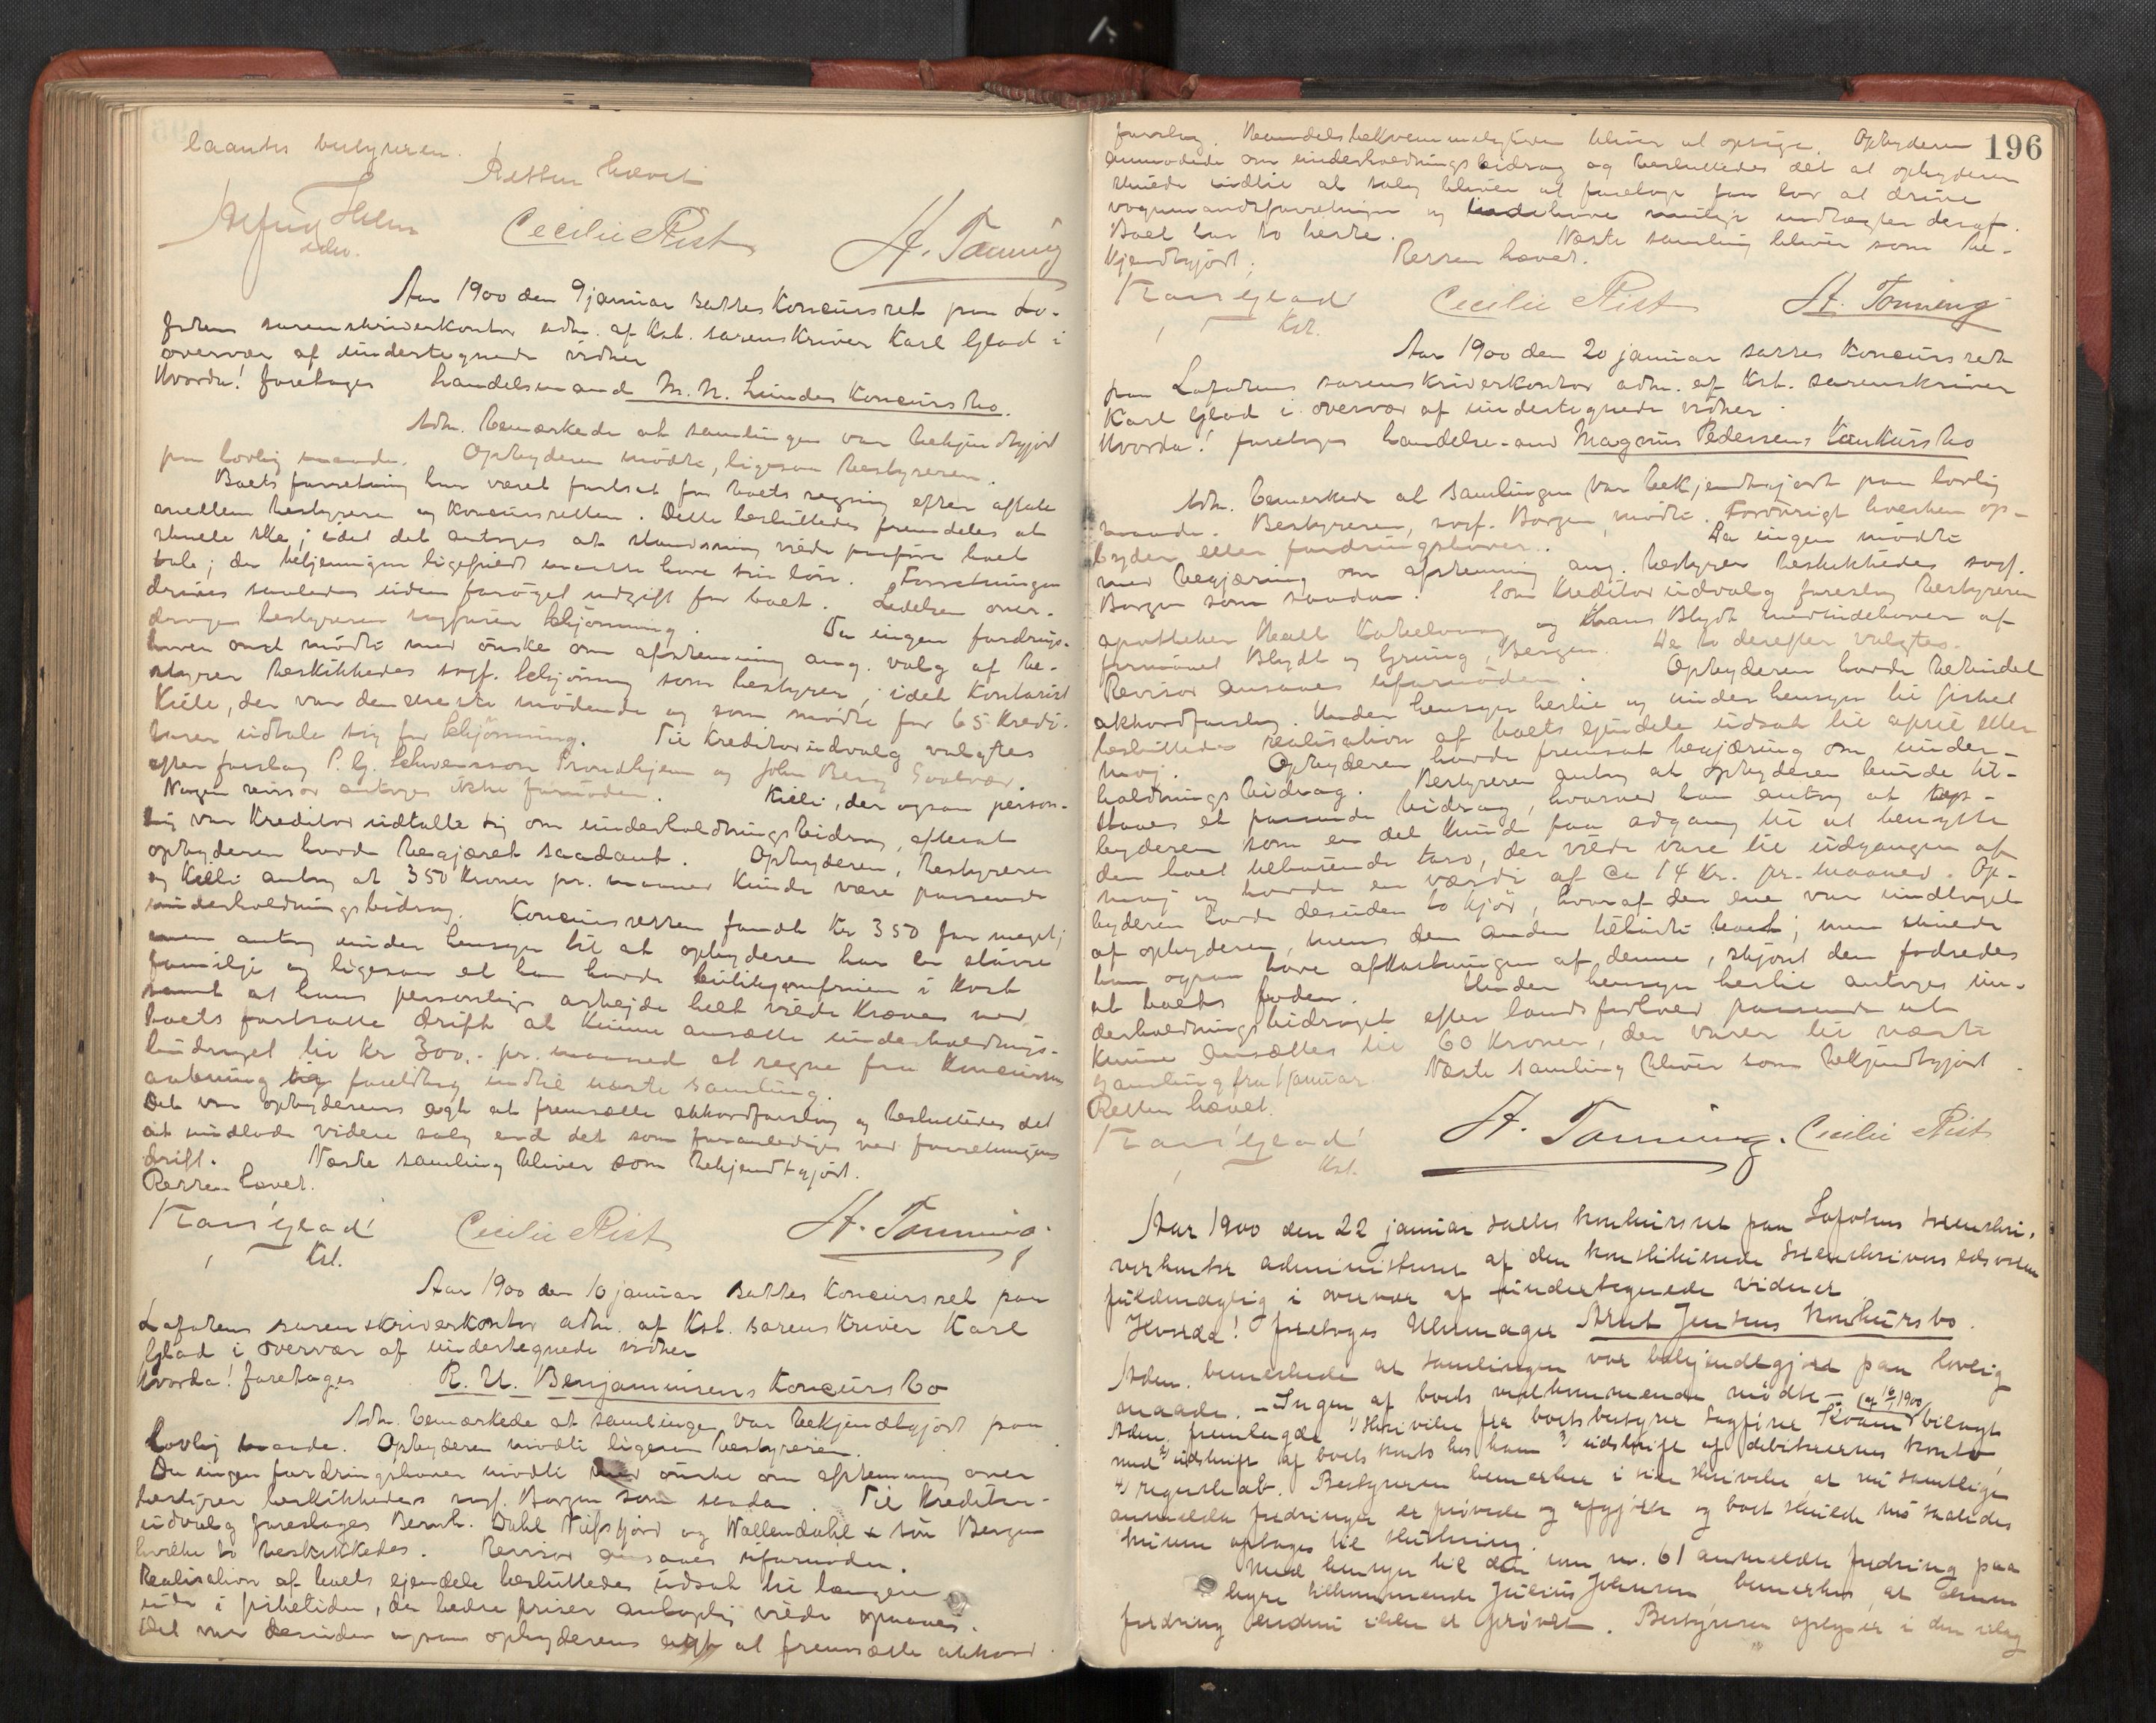 laantes bestyreren.
Retten hævet
Cecilie Rist H. Tonning
Aar 1900 den 9 januar sattes Koncursret paa Lo-
fotens sorenskriverkontor adm. af Kst. sorenskriver Karl Glad i
overvær af undertegnede vidner
Hvorda! foretages handelsmand M. N. Lundes Koncursbo.
Adm. bemærkede at samlingen var bekjendtgjort
paa lovlig maade. Opbyderen mødte, ligesaa bestyreren.
Boets forretning har været fortsat for boets regning efter aftale
mellem bestyreren og Koncursretten. Dette besluttedes fremdeles at
skulle ske; idet det antoges at standsning vilde paaføre boet
tab; da betjeningen ligefuldt maatte have sin løn. Forretningen
drives saaledes uden forøget udgift for boet. Ledelsen over-
drages bestyreren sagfører Schjønning. Da ingen fordrings-
haver mødte med ønske om afstemning ang. valg af be-
styrer beskikkedes sagf. Schjønning som bestyrer; idet Kontorist
Kiile, der var den eneste mødende og som mødte for 65 Kredi-
torer udtalte sig for Schjønning. Til Kreditorudvalg valgtes
efter forslag P. G. Schwensson Trondhjem og John Berg Svolvær.
Nogen revisor antoges ikke fornøden. Kiile, der ogsaa person-
lig var Kreditor udtalte sig om underholdningsbidrag, efterat
opbyderen havde begjæret saadant. Opbyderen, bestyreren
og Kiile antog at 350 Kroner pr. maaned kunde være passende
underholdningsbidrag. Koncursretten fandt Kr 350 for meget;
men antog under hensyn til at opbyderen har en større
familje og ligesaa at han havde butikjomfruen i Kost
samt at hans personlige arbejde helt vilde kræves ved
boets fortsatte drift at kunne ansætte underholdnings-
bidraget til Kr 300,- pr. maaned at regne fra Koncursens
aabning og foreløbig indtil næste samling.
Det var opbyderens agt at fremsætte akkordforslag og besluttedes det
at undlade videre salg end det som foranlediges ved forretningens
drift. Næste samling bliver som bekjendtgjort.
Retten hævet.
Karl Glad Cecilie Rist H. Tonning
Kst.
Aar 1900 den 10 januar sattes Koncursret paa
Lofotens sorenskriverkontor adm. af Kst. sorenskriver Karl
Glad i overvær af undertegnede vidner
Hvorda! foretages R. U. Benjaminsens Koncursbo
Adm. bemærkede at samlingen var bekjendtgjort paa
lovlig maade. Opbyderen mødte ligesaa bestyreren.
Da ingen fordringshaver mødte med ønske om afstemning over
bestyrer beskikkedes sagf. Borgen som saadan. Til Kreditor-
udvalg foresloges Bernh. Dahl og Wallendahl & søn Bergen
hvilke to beskikkedes. Revisor ansaaes ufornøden.
Realisation af boets ejendele besluttedes udsat til længere
ude i fisketiden, da bedre priser antagelig vilde opnaaes.
Det var desuden ogsaa opbyderens agt at fremsætte akkord
196
forslag. Handelsbekvemmeligheden bliver at opsige. Opbyderen
anmodede om underholdningsbidrag og besluttedes det at opbyderen
skulde indtil at salg bliver at foretage faa lov at drive
vognmandsforretningen og indehave mulige indtægter deraf.
Boet har to heste. Næste samling bliver som be-
kjendtgjort. Retten hævet.
Karl Glad Cecilie Rist H. Tonning
Kst.
Aar 1900 den 20 januar sattes Koncursret
paa Lofotens sorenskriverkontor adm. af Kst. sorenskriver
Karl Glad i overvær af undertegnede vidner.
Hvorda! foretages handelsmand Magnus Pedersens Konkursbo
Adm. bemerkede at samlingen var bekjendtgjort paa lovlig
maade. Bestyreren, sagf. Borgen mødte. Forøvrigt hverken op-
byder eller fordringshaver. Da ingen mødte
med begjæring om afstemning ang. bestyrer beskikkedes sagf.
Borgen som saadan. Som Kreditorudvalg foreslog bestyreren
apotheker Hall Kabelvaag og Hans Blydt medindehaver af
firmaet Blydt og Grung, Bergen. De to derefter valgtes.
Revisor ansaaes ufornøden. Opbyderen havde bebudet
akkordforslag. Under hensyn hertil og under hensyn til fisket
besluttedes realisation af boets ejendele udsat til april eller
maj. Opbyderen havde fremsat begjæring om under-
holdningsbidrag. Bestyreren antog at opbyderen burde til-
staaes et passende bidrag, hvorved han antog at op-
byderen som en del kunde faa adgang til at benytte
den boet tilhørende torv, der vilde vare til udgangen af
maj og havde en værdi af ca 14 Kr. pr. maaned. Op-
byderen havde desuden to kjør, hvoraf den ene var undtaget
af opbyderen, mens den anden tilhørte boet; men skulde
han ogsaa have afkastningen af denne, skjønt den fodredes
at boets foder. Under hensyn hertil antoges un-
derholdningsbidraget efter landsforhold passende at
kunne ansættes til 60 Kroner, der varer til næste
samling fra 1 januar. Næste samling bliver som bekjendtgjort.
Retten hævet.
Karl Glad H. Tonning. Cecilie Rist
Kst.
Aar 1900 den 22 januar sattes konkursret paa Lofotens sorenskri-
verkontor administreret af den konstituerede sorenskrivers edsvorne
fuldmægtig i overvær af undertegnede vidner.
Hvorda! foretoges Uhrmager Arnt Jensens konkursbo.
Adm. bemerkede at samlingen var bekjendtgjort paa lovlig
maade. - Ingen af boets vedkommende mødte. -
Adm. fremlagde 1) skrivelse fra boets bestyrer sagfører Kvaan af 16/1 1900 bilagt
med 2) udskrift af boets konto hos ham 3) udskrift af debitorernes konto,
4) regnskab. Bestyreren bemerker i sin skrivelse at nu samtlige
anmeldte fordringer er prøvede og afgjorte og boet skulde nu saaledes
kunne optages til slutning.
Med hensyn til den under no. 61 anmeldte fordring paa
leye tilkommende Julius Johnsen bemerkes, at denne
fordring endnu ikke er prøvet. Bestyreren oplyser i den